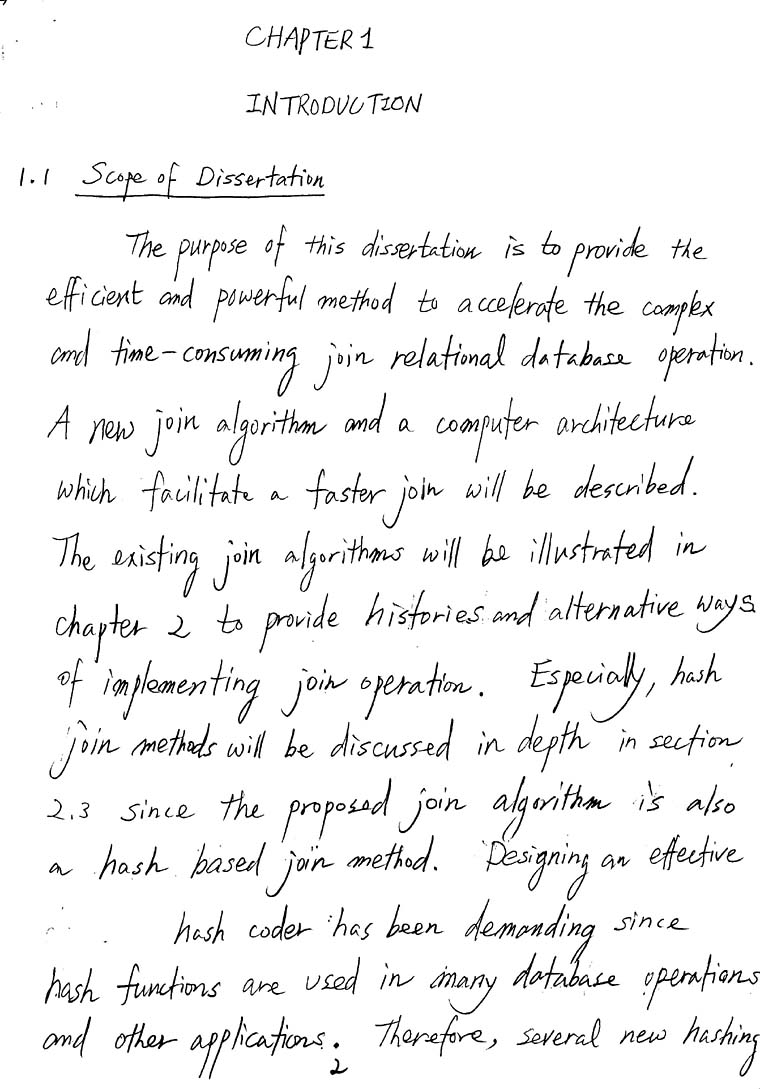 CHAPTER 1
INTRODUCTION
1.1 Scope of Dissertation
The purpose of this dissertation is to provide the
efficient and powerful method to accelerate the complex
and time-consuming join relational database operation.
A new join algorithm and a computer architecture
which facilitate a faster join will be described.
The existing join algorithms will be illustrated in
chapter 2 to provide histories and alternative ways
of implementing join operation. Especially, hash
join methods will be discussed in depth in section
2.3 since the proposed join algorithm is also
a hash based join method. Designing an effective
hash coder has been demanding since
hash functions are used in many database operations
and other applications. Therefore, several new hashing
2